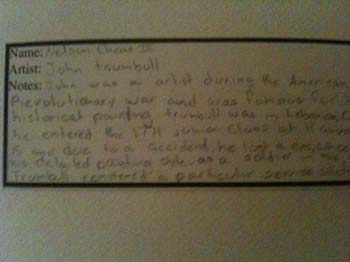 Name: Nelson
Artist: John trumball
Notes: John was a artist during the American
Revolutionary war and was famous for
historical painting, trumbull was in Lebanon, C
he entered the 1771 class at
15 and due to a accident, he lost a eye,
his detailed painting style, as a soldier in the
Trumbull rendered a particular service